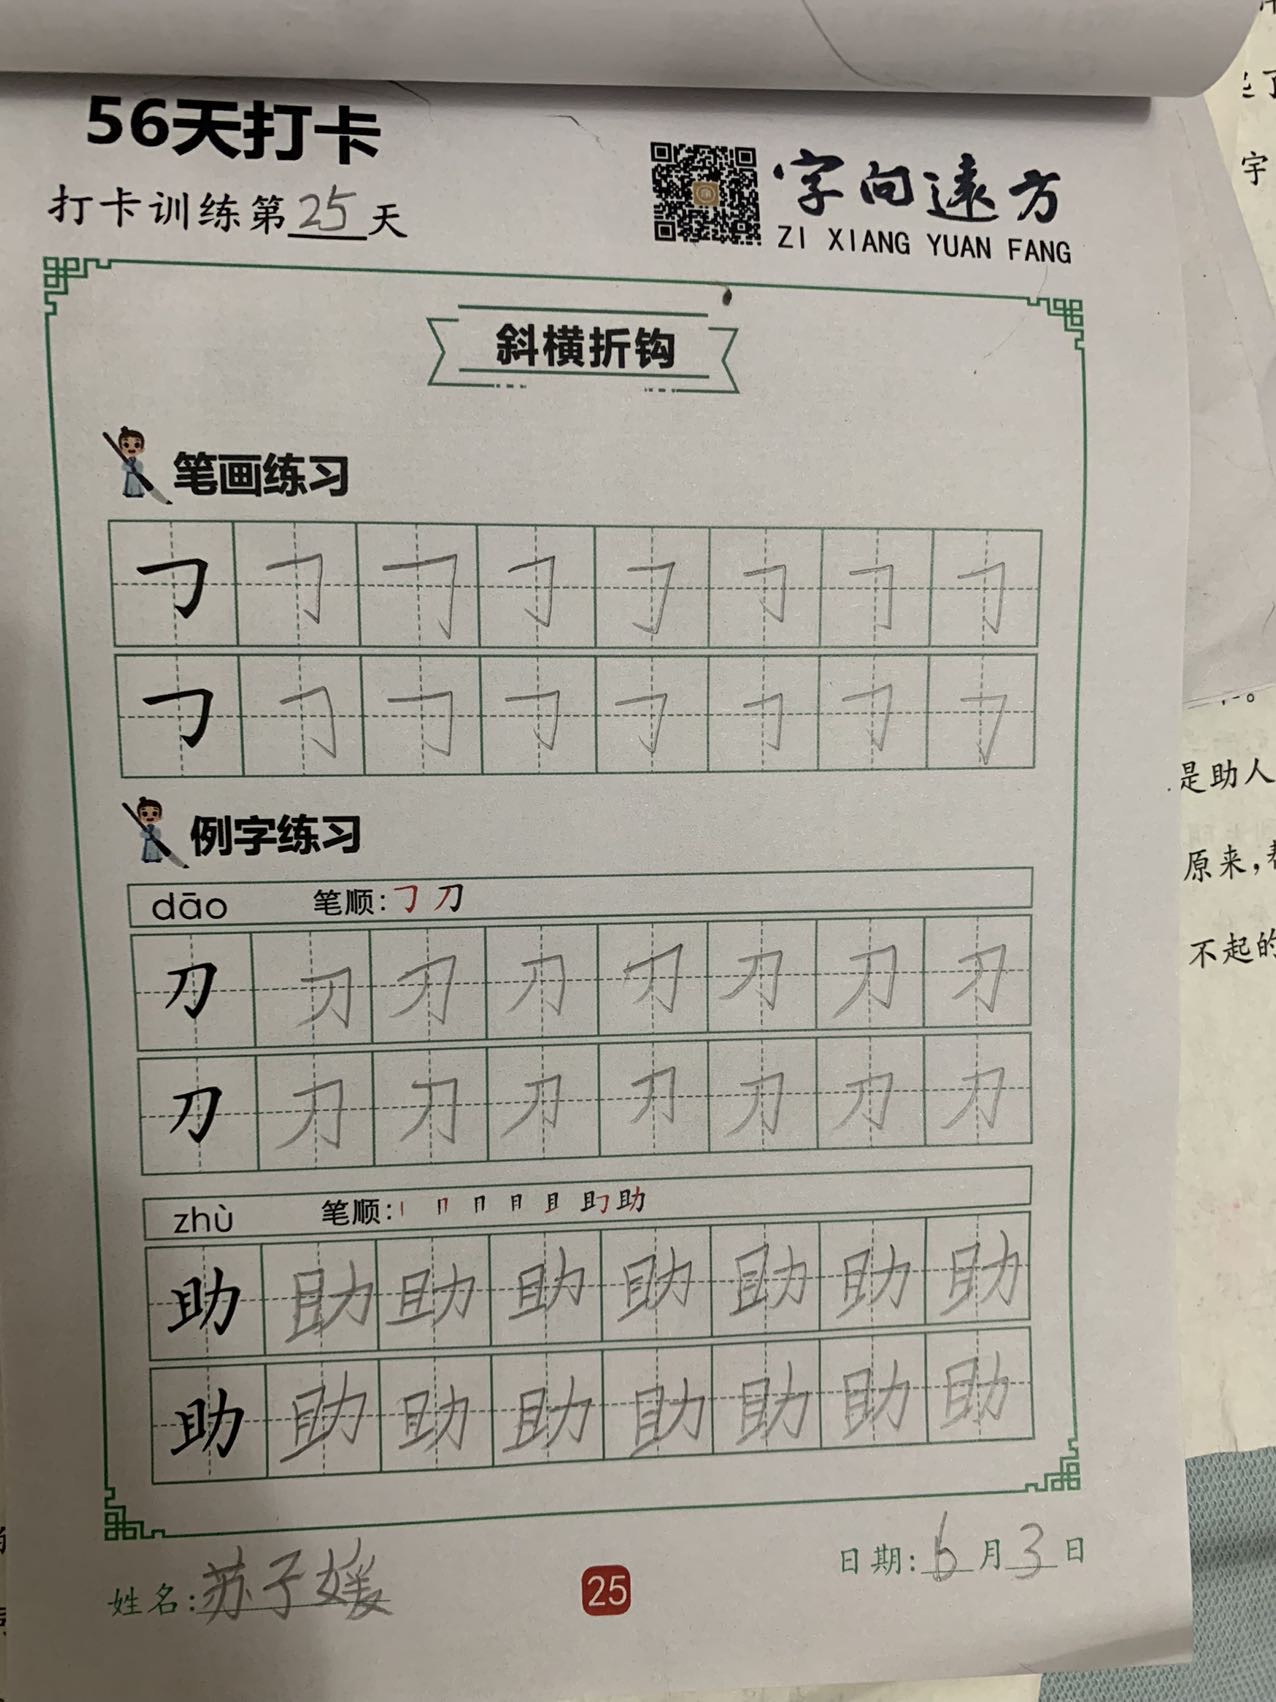 56天打卡
打卡训练第25天
字向遠方
ZI XIANG YUAN FANG
斜横折钩
笔画练习
㇆ ㇆ ㇆ ㇆ ㇆ ㇆ ㇆ ㇆
㇆ ㇆ ㇆ ㇆ ㇆ ㇆ ㇆ ㇆
例字练习
dāo 笔顺:㇆ 刀
刀 刀 刀 刀 刀 刀 刀 刀
刀 刀 刀 刀 刀 刀 刀 刀
zhù 笔顺:丨 冂 月 且 助
助 助 助 助 助 助 助 助
助 助 助 助 助 助 助 助
姓名:苏子媛
25
日期:6月3日
是助人
原来,
不起的